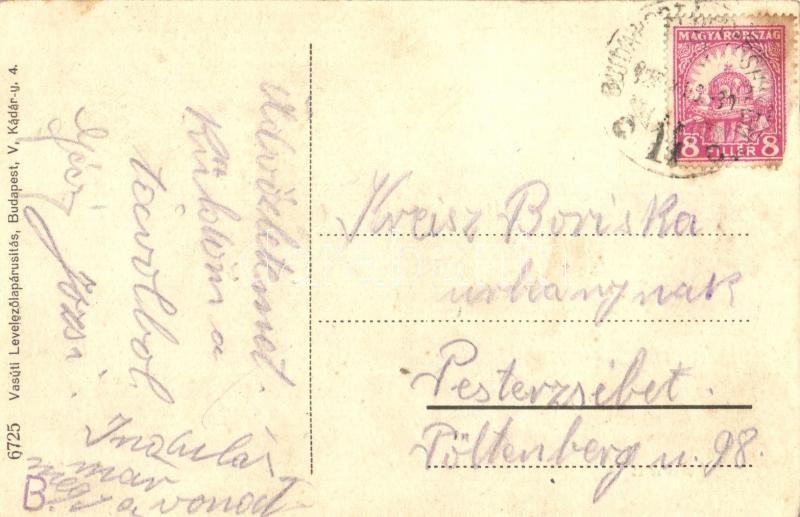 Vasúti Levelezőlapárusitás, Budapest, V, Kádár-u, 4.
6725
MAGYARORSZÁG
8 FILLÉR 8
Üdvözletemet
Küldöm a
távolbol
Józsi
Indulás
már
megy a vonat
B.
Kreisz Boriska
urhanynak
Pesterzsébet.
Pöltenberg u. 98.